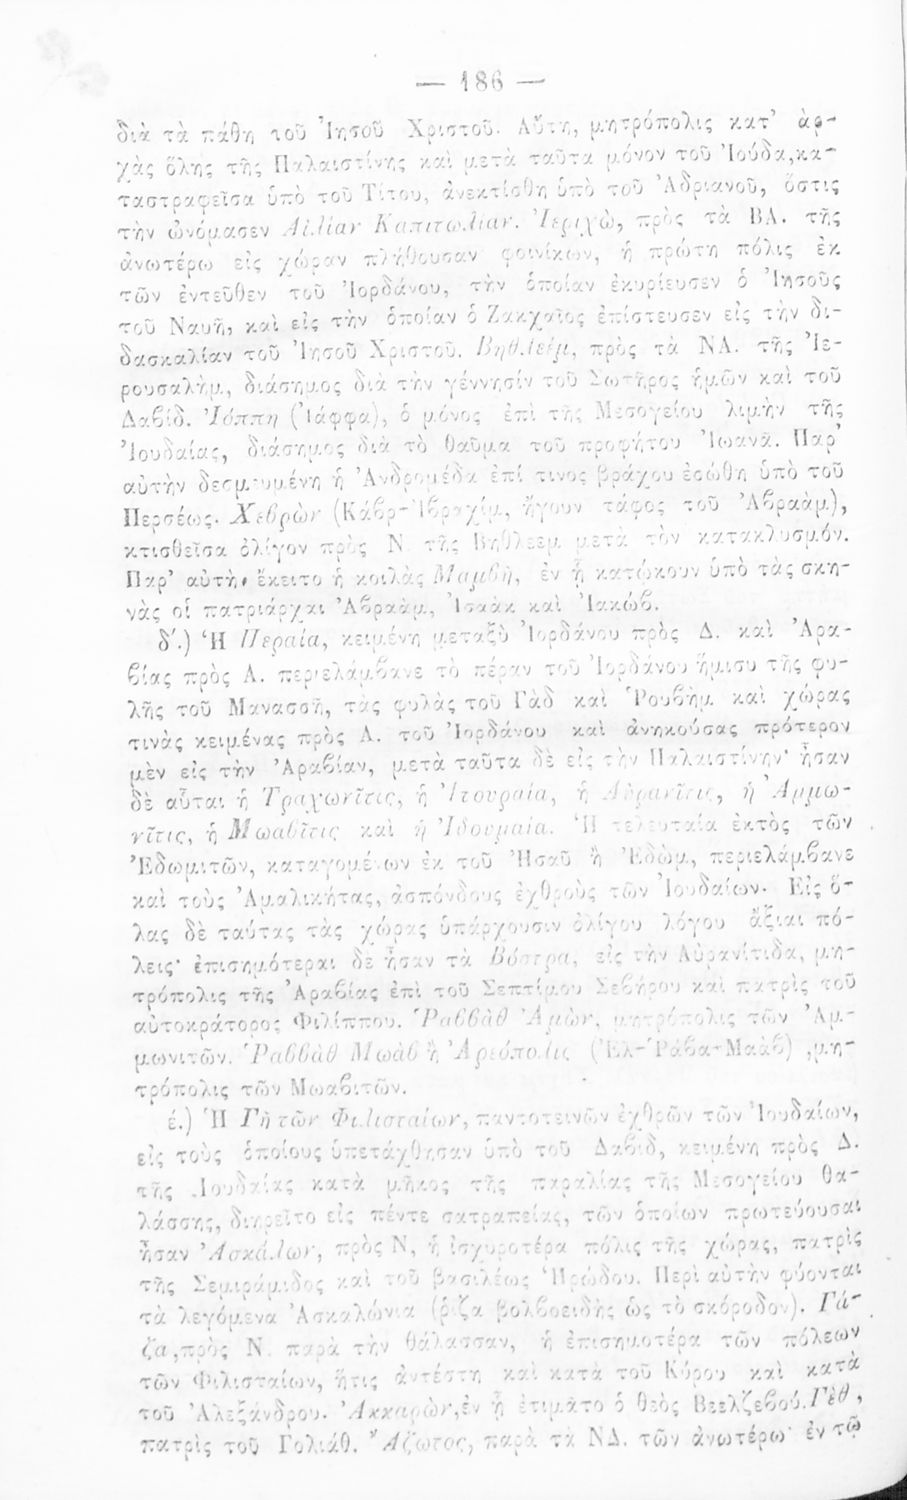 — 186 —
διὰ τὰ πάθη τοῦ Ἰησοῦ Χριστοῦ. Αὕτη, μητρόπολις κατ' ἀρ-
χὰς ὅλης τῆς Παλαιστίνης καὶ μετὰ ταῦτα μόνον τοῦ Ἰούδα, κα-
ταστραφεῖσα ὑπὸ τοῦ Τίτου, ἀνεκτίσθη ὑπὸ τοῦ Ἀδριανοῦ, ὅστις
τὴν ὠνόμασεν Αἰλίαν Καπιτωλίαν. Ἱεριχὼ, πρὸς τὰ ΒΑ. τῆς
ἀνωτέρω εἰς χώραν πλήθουσαν φοινίκων, ἡ πρώτη πόλις ἐκ
τῶν ἐντεῦθεν τοῦ Ἰορδάνου, τὴν ὁποίαν ἐκυρίευσεν ὁ Ἰησοῦς
τοῦ Ναυῆ, καὶ εἰς τὴν ὁποίαν ὁ Ζακχαῖος ἐπίστευσεν εἰς τὴν δι-
δασκαλίαν τοῦ Ἰησοῦ Χριστοῦ. Βηθλεὲμ, πρὸς τὰ ΝΔ. τῆς Ἱε-
ρουσαλὴμ, διάσημος διὰ τὴν γέννησίν τοῦ Σωτῆρος ἡμῶν καὶ τοῦ
Δαβίδ. Ἰόππη (Ἰάφφα), ὁ μόνος ἐπὶ τῆς Μεσογείου λιμὴν τῆς
Ἰουδαίας, διάσημος διὰ τὸ θαῦμα τοῦ προφήτου Ἰωανᾶ. Παρ'
αὐτὴν δεσμευμένη ἡ Ἀνδρομέδα ἐπί τινος βράχου ἐσώθη ὑπὸ τοῦ
Περσέως. Χεβρὼν (Κάβρ-Ἰβραχίμ, ἤγουν τάφος τοῦ Ἀβραὰμ),
κτισθεῖσα ὀλίγον πρὸς Ν τῆς Βηθλεεμ μετὰ τὸν κατακλυσμόν.
Παρ' αὐτὴν ἔκειτο ἡ κοιλὰς Μαμβῆ, ἐν ᾗ κατῴκουν ὑπὸ τὰς σκη-
νὰς οἱ πατριάρχαι Ἀβραὰμ, Ἰσαὰκ καὶ Ἰακώβ.
δ'.) Ἡ Περαία, κειμένη μεταξὺ Ἰορδάνου πρὸς Δ. καὶ Ἀρα-
βίας πρὸς Α. περιελάμβανε τὸ πέραν τοῦ Ἰορδάνου ἥμισυ τῆς φυ-
λῆς τοῦ Μανασσῆ, τὰς φυλὰς τοῦ Γὰδ καὶ Ῥουβὴμ καὶ χώρας
τινὰς κειμένας πρὸς Α. τοῦ Ἰορδάνου καὶ ἀνηκούσας πρότερον
μὲν εἰς τὴν Ἀραβίαν, μετὰ ταῦτα δὲ εἰς τὴν Παλαιστίνην· ἦσαν
δὲ αὗται ἡ Τραχωνῖτις, ἡ Ἰτουραία, ἡ Αὐρανῖτις, ἡ Ἀμμω-
νῖτις, ἡ Μωαβῖτις καὶ ἡ Ἰδουμαία. Ἡ τελευταία ἐκτὸς τῶν
Ἐδωμιτῶν, καταγομένων ἐκ τοῦ Ἠσαῦ ἢ Ἐδὼμ, περιελάμβανε
καὶ τοὺς Ἀμαλικήτας, ἀσπόνδους ἐχθροὺς τῶν Ἰουδαίων. Εἰς ὅ-
λας δὲ ταύτας τὰς χώρας ὑπάρχουσιν ὀλίγου λόγου ἄξιαι πό-
λεις· ἐπισημότεραι δὲ ἦσαν τὰ Βόστρα, εἰς τὴν Αὐρανίτιδα, μη-
τρόπολις τῆς Ἀραβίας ἐπὶ τοῦ Σεπτίμου Σεβήρου καὶ πατρὶς τοῦ
αὐτοκράτορος Φιλίππου. Ῥαββὰθ Ἀμὼν, μητρόπολις τῶν Ἀμ-
μωνιτῶν. Ῥαββὰθ Μωὰβ ἢ Ἀρεόπολις (Ἐλ-Ῥάβα-Μαὰβ) ,μη-
τρόπολις τῶν Μωαβιτῶν.
έ.) Ἡ Γῆ τῶν Φιλισταίων, παντοτεινῶν ἐχθρῶν τῶν Ἰουδαίων,
εἰς τοὺς ὁποίους ὑπετάχθησαν ὑπὸ τοῦ Δαβίδ, κειμένη πρὸς Δ.
τῆς Ἰουδαίας κατὰ μῆκος τῆς παραλίας τῆς Μεσογείου θα-
λάσσης, διῃρεῖτο εἰς πέντε σατραπείας, τῶν ὁποίων πρωτεύουσαι
ἦσαν Ἀσκάλων, πρὸς Ν, ἡ ἰσχυροτέρα πόλις τῆς χώρας, πατρὶς
τῆς Σεμιράμιδος καὶ τοῦ βασιλέως Ἡρώδου. Περὶ αὐτὴν φύονται
τὰ λεγόμενα Ἀσκαλώνια (ῥίζα βολβοειδὴς ὡς τὸ σκόροδον). Γά-
ζα, πρὸς Ν. παρὰ τὴν θάλασσαν, ἡ ἐπισημοτέρα τῶν πόλεων
τῶν Φιλισταίων, ἥτις ἀντέστη καὶ κατὰ τοῦ Κύρου καὶ κατὰ
τοῦ Ἀλεξάνδρου. Ἀκκαρὼν, ἐν ᾗ ἐτιμᾶτο ὁ θεὸς Βεελζεβού. Γὲθ,
πατρὶς τοῦ Γολιάθ. Ἄζωτος, παρὰ τὰ ΝΔ. τῶν ἀνωτέρω ἐν τῷ